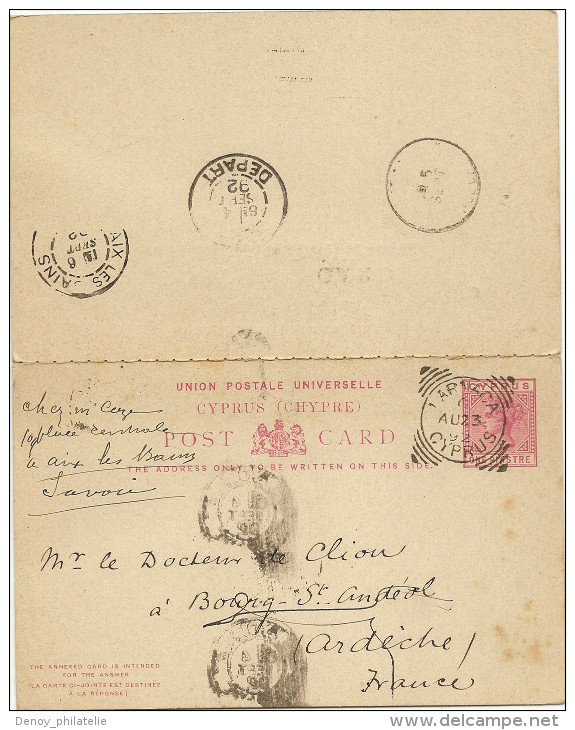 DEPART
SEPT
92
AIX LES BAINS
SEPT
6
UNION POSTALE UNIVERSELLE
CYPRUS (CHYPRE)
POST CARD
THE ADDRESS ONLY TO BE WRITTEN ON THIS SIDE.
CYPRUS
ONE PIASTRE
LARNACA
AU 23
92
CYPRUS
chez Mr
place centrale
à aix les Bains
Savoie
Mr le Docteur de Clion
à Bourg-St-Andéol
(Ardèche)
France
THE ANNEXED CARD IS INTENDED
FOR THE ANSWER
(LA CARTE CI-JOINTE EST DESTINÉE
À LA RÉPONSE)
Denoy_philatelie
www.delcampe.net